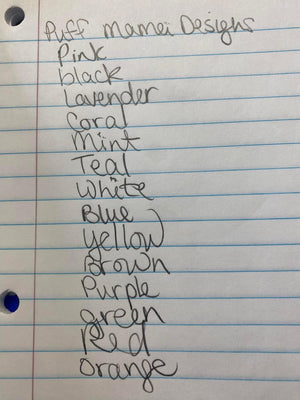 Puff Mamei Designs
Pink
black
Lavender
Coral
Mint
Teal
White
Blue
yellow
Brown
Purple
green
Red
orange